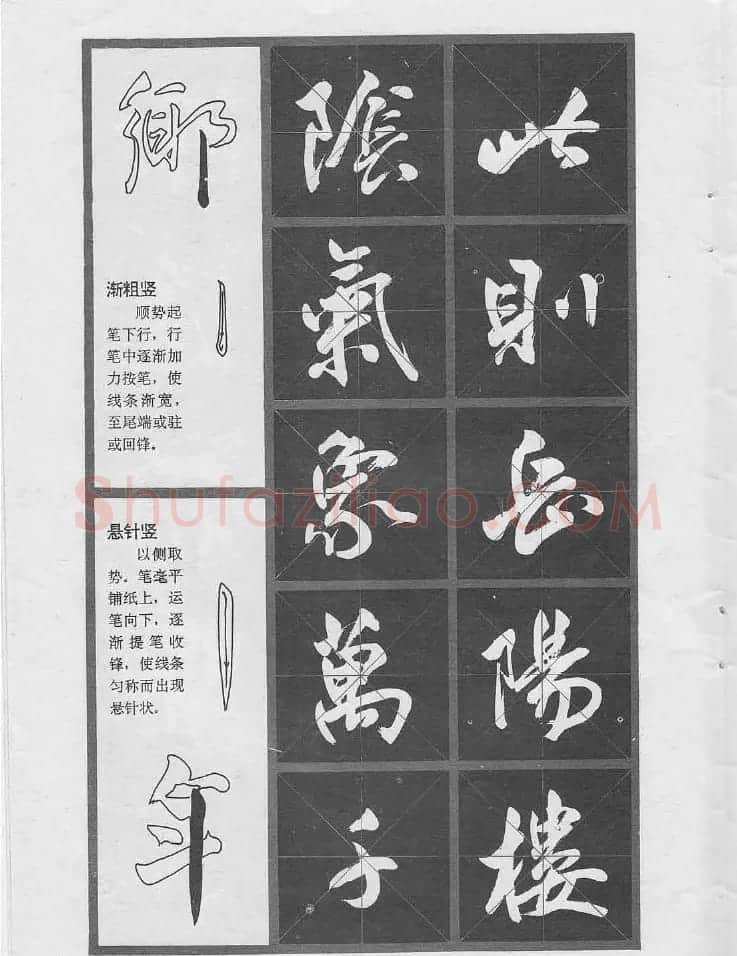 鄉
渐粗竖
顺势起
笔下行，行
笔中逐渐加
力按笔，使
线条渐宽，
至尾端或驻
或回锋。
悬针竖
以侧取
势。笔毫平
铺纸上，运
笔向下，逐
渐提笔收
锋，使线条
匀称而出现
悬针状。
年
陰氣象萬千
此則岳陽樓
Shufaziliao.COM